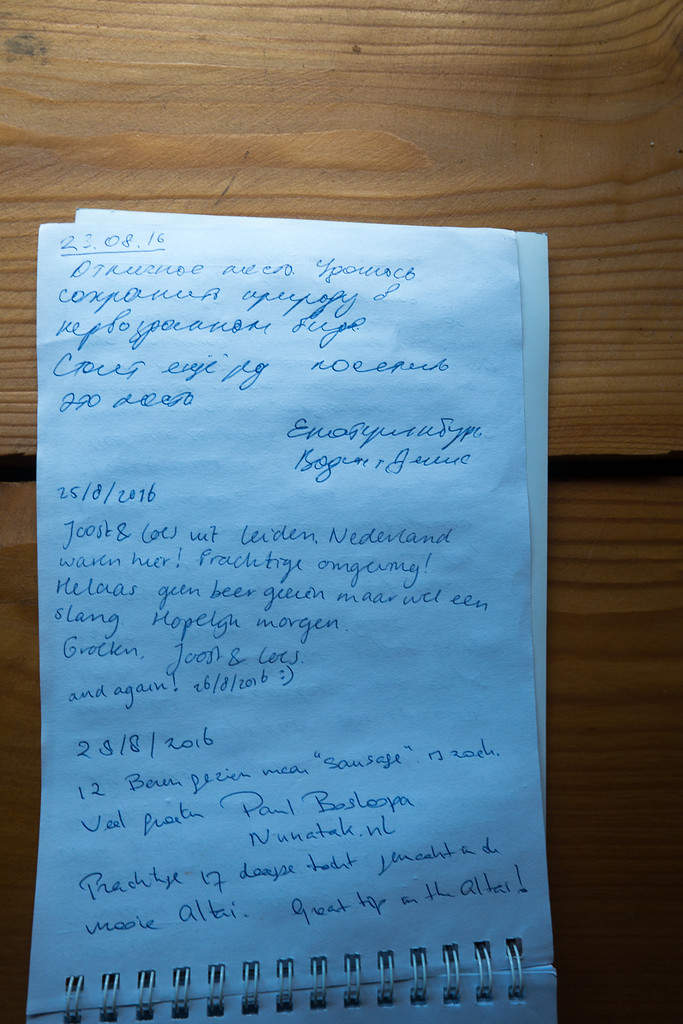 23.08.16
Отличное место. Удалось
сохранить природу в
первозданном виде
Стоит ещё посетить
это место
Екатеринбург
Вадим + Денис
25/8/2016
Joost & Loes uit Leiden, Nederland
waren hier! Prachtige omgeving!
Helaas geen beer gezien maar wel een
slang Hopelijk morgen.
Groeten, Joost & Loes.
and again! 26/8/2016 :)
28/8/2016
12 Beren gezien maar "Sausage" is zoek.
Veel groeten Paul
Nunatak.nl
Prachtige 17 daagse tocht gemaakt in de
mooie Altai. Great trip in the Altai!